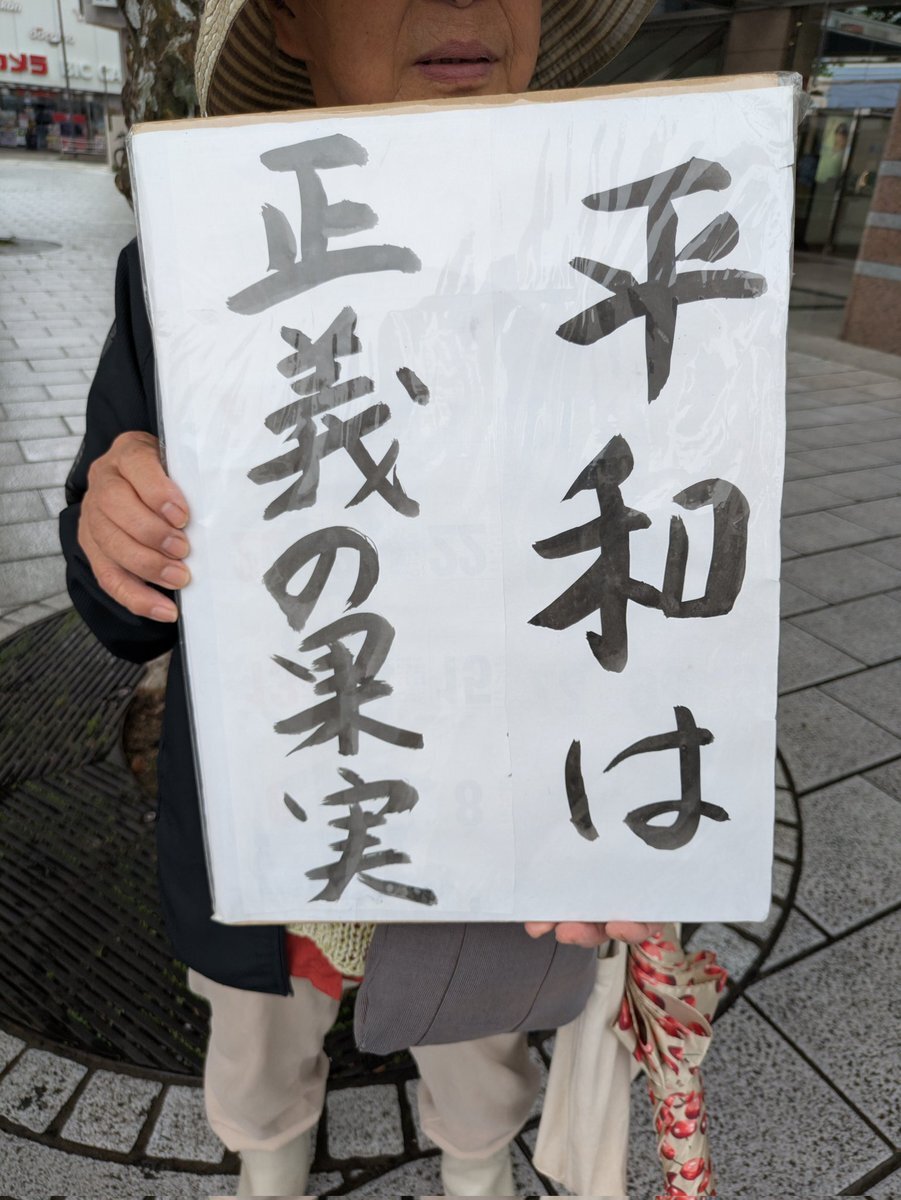 平和は
正義の果実